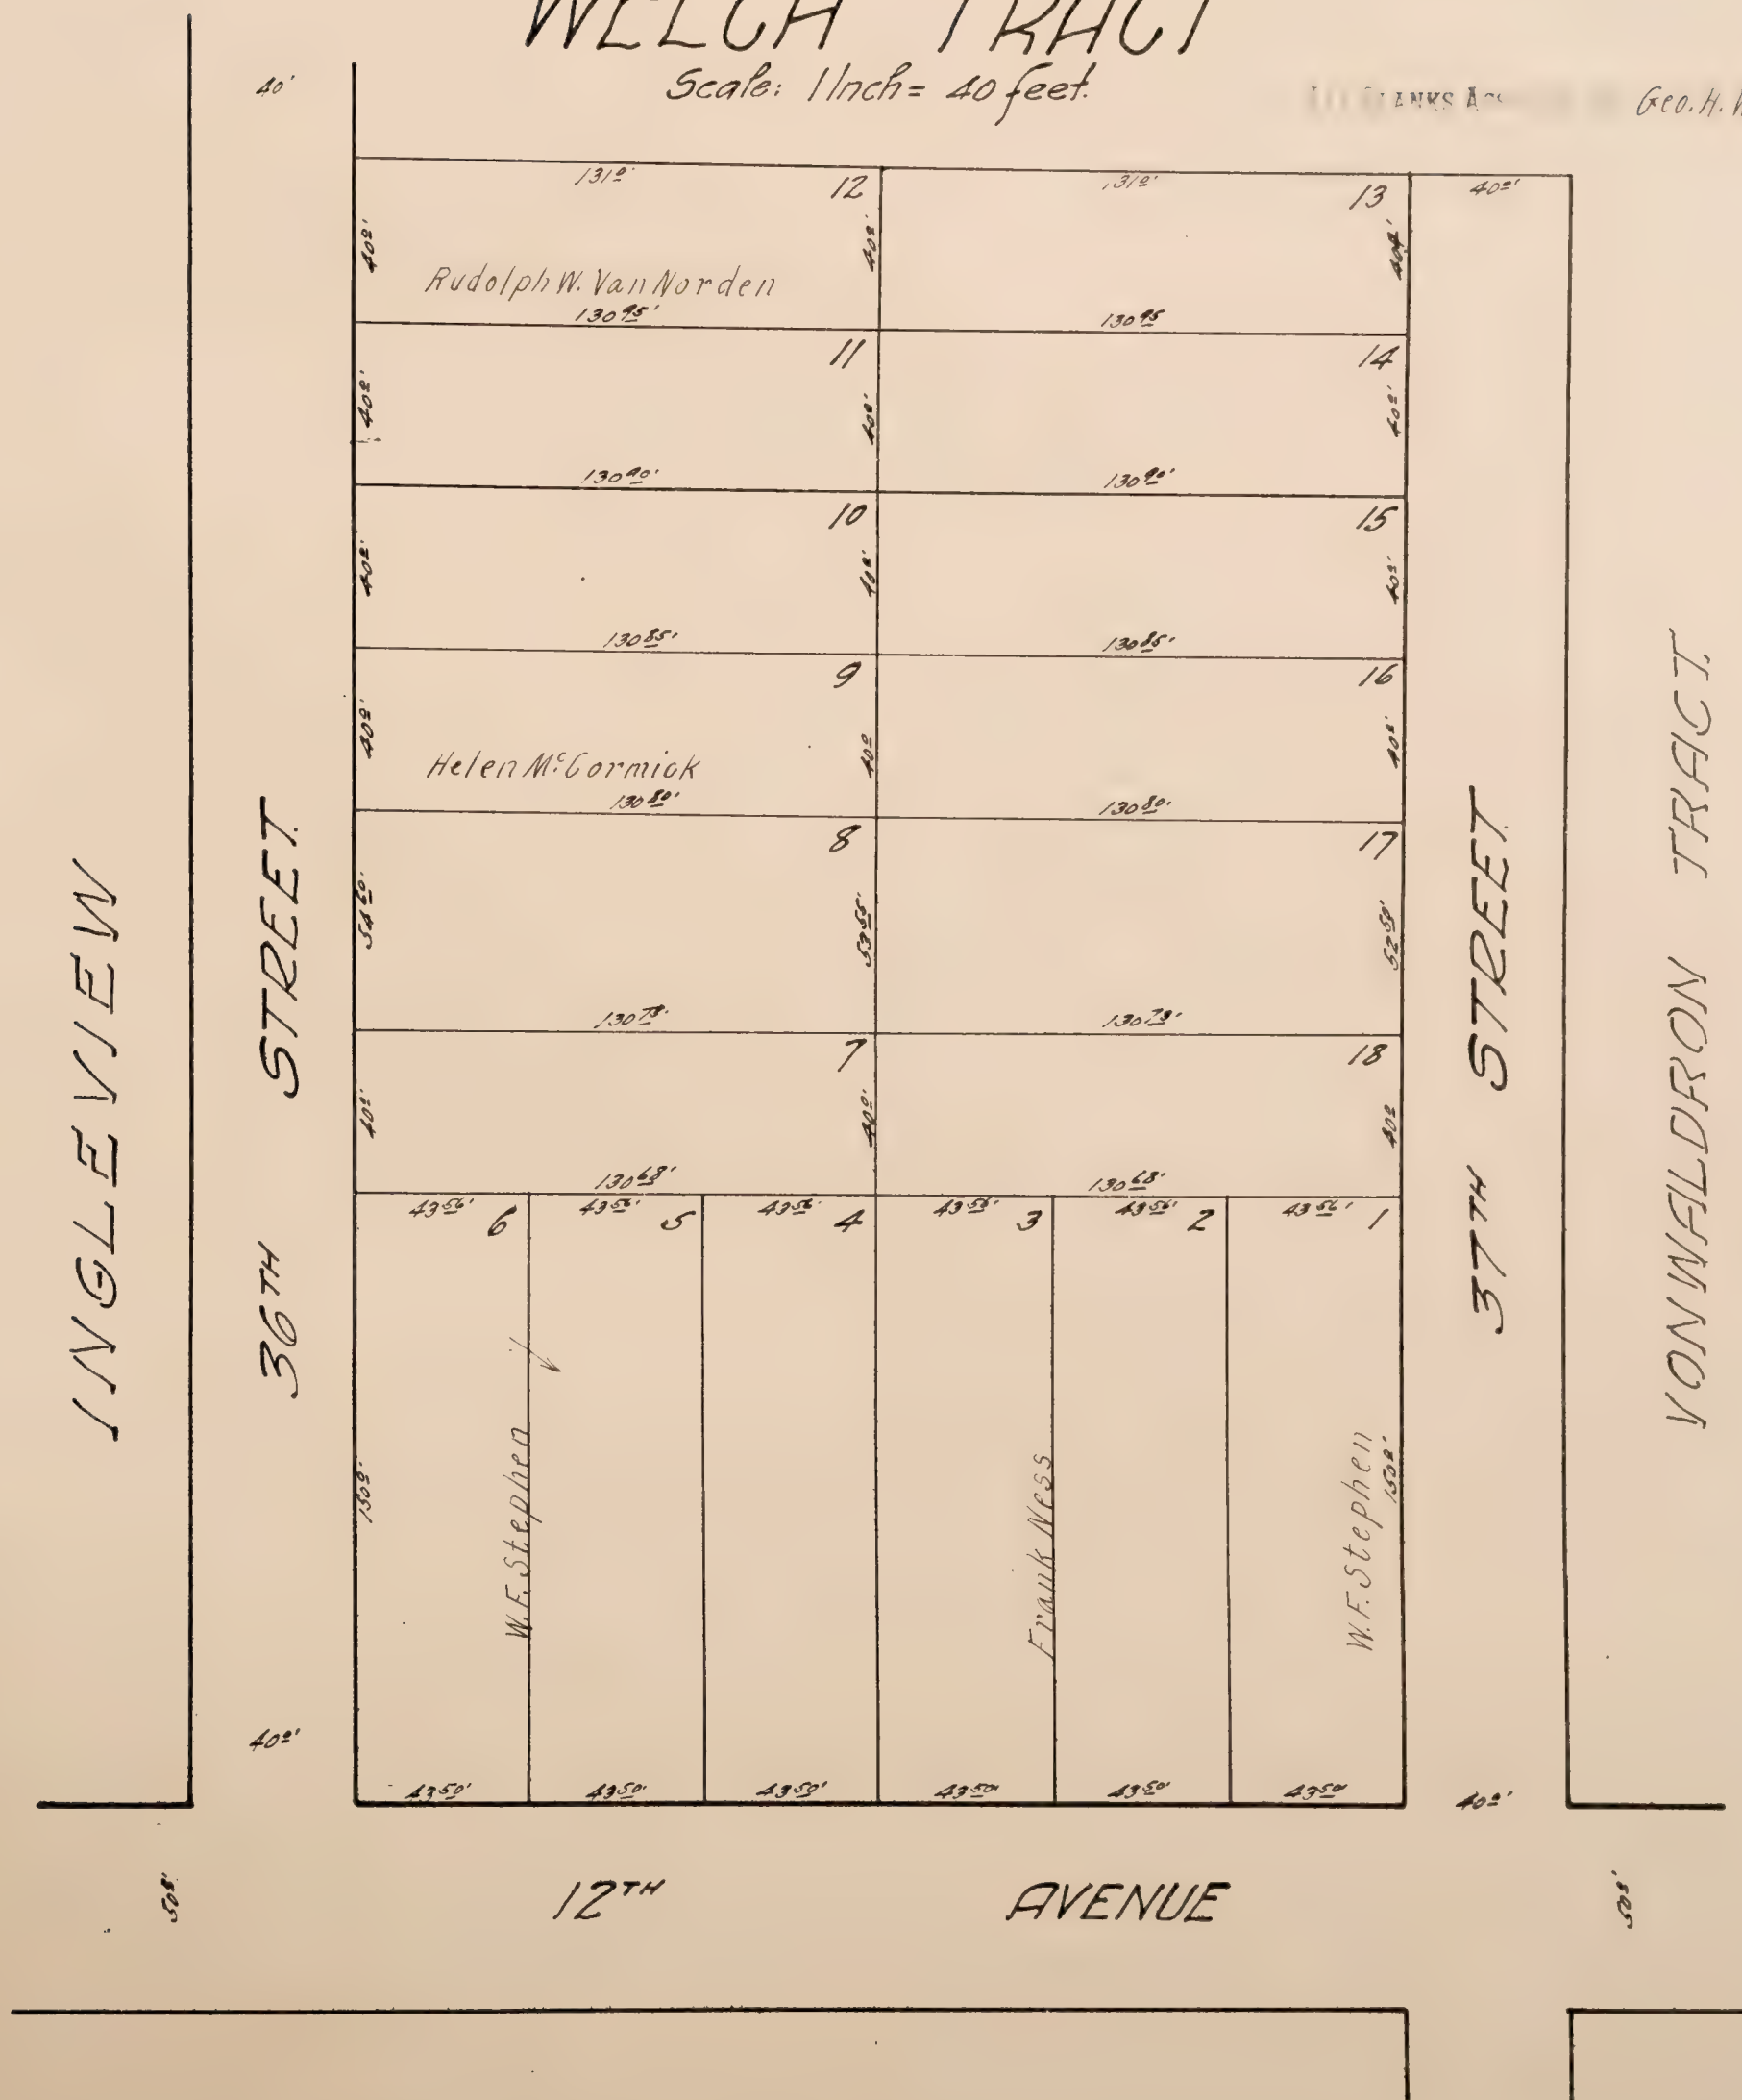 WELCH TRACT
Scale: 1 Inch = 40 feet.
Geo. H.
40'
131º' 12 131º' 13 40º'
40º' 40º' 40º'
Rudolph W. Van Norden
130 95' 130 95
11 14
40º' 40º' 40º'
130 90' 130 90'
10 15
40º' 40º' 40º'
130 85' 130 85'
9 16
40º' 40º 40º'
Helen McCormick
130 80' 130 80'
8 17
54 60' 53 55' 52 50'
130 73' 130 73'
7 18
40º' 40º' 40º
130 68' 130 68'
43 56' 6 43 56' 5 43 56' 4 43 56' 3 43 56' 2 43 56' 1
150º' 150º'
W.F. Stephen
Frank Ness
W.F. Stephen
40º'
43 50' 43 50' 43 50' 43 50' 43 50' 43 50'
40º'
INGLEVIEW
36TH STREET
37TH STREET
VONWALDRON TRACT.
50º' 50º'
12TH AVENUE